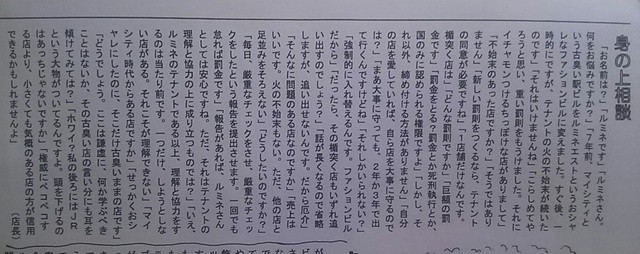 身の上相談
「お名前は？」「ルミネです」「ルミネさん。
何をお悩みですか？」「７年前、マイシティと
いう古臭い駅ビルをルミネエストというおシャ
レなファッションビルに変えました。すぐ後、一
時的にですが、テナントの火の不始末が続いた
のです」「それはいけませんね」「こらしめてや
ろうと思い、重い罰則をもうけました。それに
イチャモンつけるちっぽけな店がありまして」
「不始末のあった店ですか？」「そうではあり
ません」「新しい罰則をつくるなら、テナント
の同意が必要ですね」「…１店舗だけなんです、
楯突く店は」「どんな罰則ですか」「巨額の罰
金です」「罰金をとる？罰金とか死刑執行とか、
国のみに認められる権限ですよ」「しかし、そ
れ以外、締め付ける方法がありません」「自分
の店を愛していれば、自ら店を大事に守るので
は？」「まあ大事に守っても、２年か３年で出
て行くんですけどね」「それしかいられない？」
「強制的に入れ替えるんです。ファッションビル
だから」「だったら、その楯突く店もいずれ追
い出すのでしょう？」「話が長くなるので省略
しますが、追い出せないんです、だから厄介」
「そんなに問題のある店なのですか」「売上は
いいです。火の不始末もない。ただ、他の店と
足並みをそろえない」「どうしたいのですか？」
「毎日、厳重なチェックをさせ、厳重なチェッ
クをしたという報告を提出させます。一回でも
怠れば罰金です」「報告があれば、ルミネさん
としては安心ですね。ただ、それはテナントの
理解と協力の上に成り立つものでは？」「いえ、
ルミネのテナントである以上、理解と協力をす
るのは当たり前です。一つだけ、しようとしな
い店がある。それこそが理解できない」「マイ
シティ時代からある店ですか」「せっかくおシ
ャレにしたのに、そこだけ古臭いままの店です」
「どうでしょう。ここは謙虚に、何か学ぶべき
ことはないか、その古臭い店の言い分にも耳を
傾けてみては？」「ホワイ？私の後ろにはＪＲ
という大物がついてるんですよ。頭を下げるの
はあっちじゃないですか」「権威にペコペコす
る店より、小さくても気概のある店の方が信用
できるかもしれませんよ」（店長）